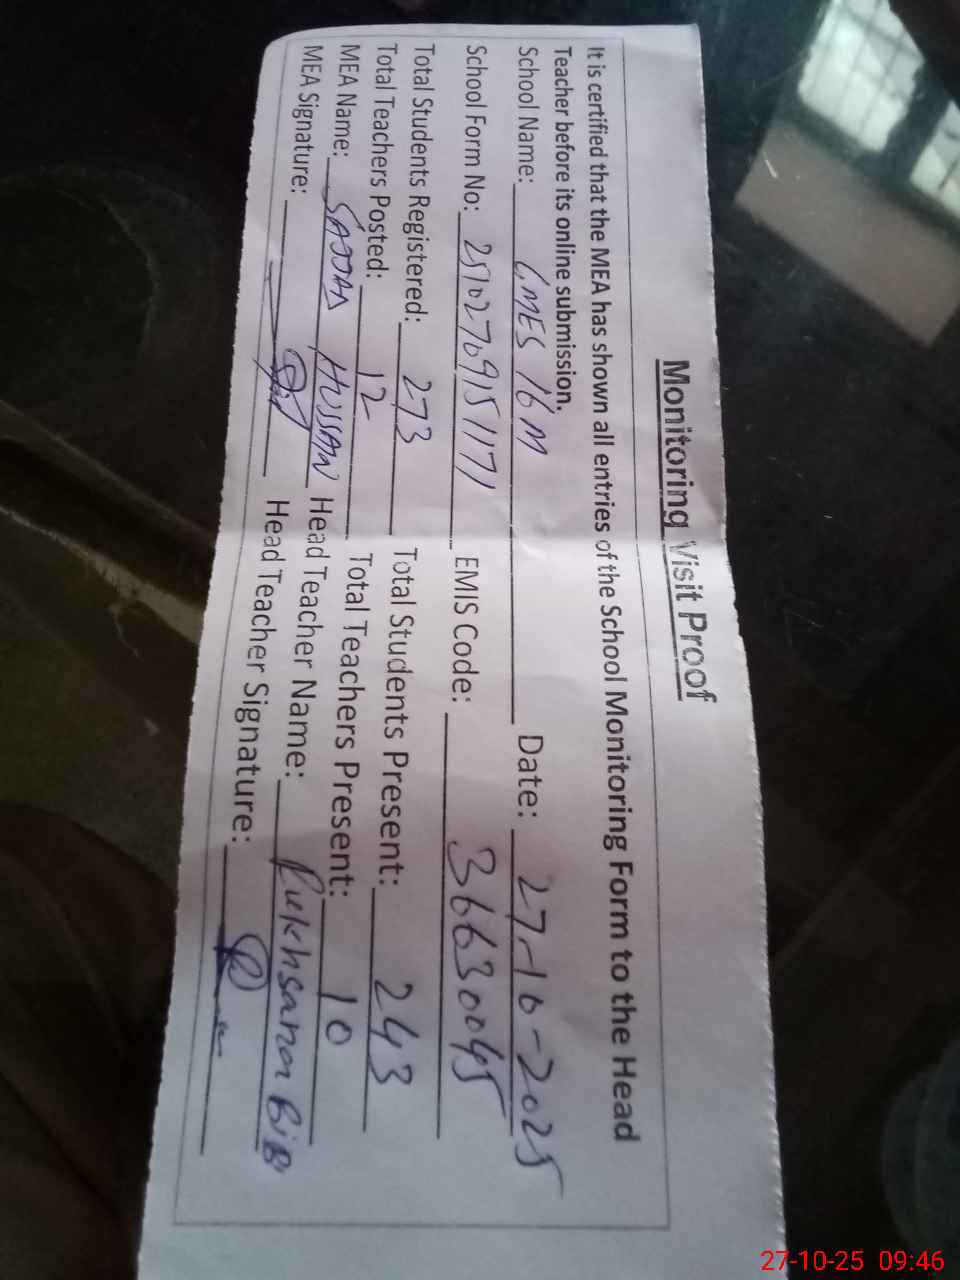 Monitoring Visit Proof
It is certified that the MEA has shown all entries of the School Monitoring Form to the Head
Teacher before its online submission.
School Name: GMES 16 M Date: 27-10-2025
School Form No: 2510270951171 EMIS Code: 36630045
Total Students Registered: 273 Total Students Present: 243
Total Teachers Posted: 12 Total Teachers Present: 10
MEA Name: SAJJAD HUSSAIN Head Teacher Name: Rukhsana Bibi
MEA Signature: Head Teacher Signature:
27-10-25 09:46